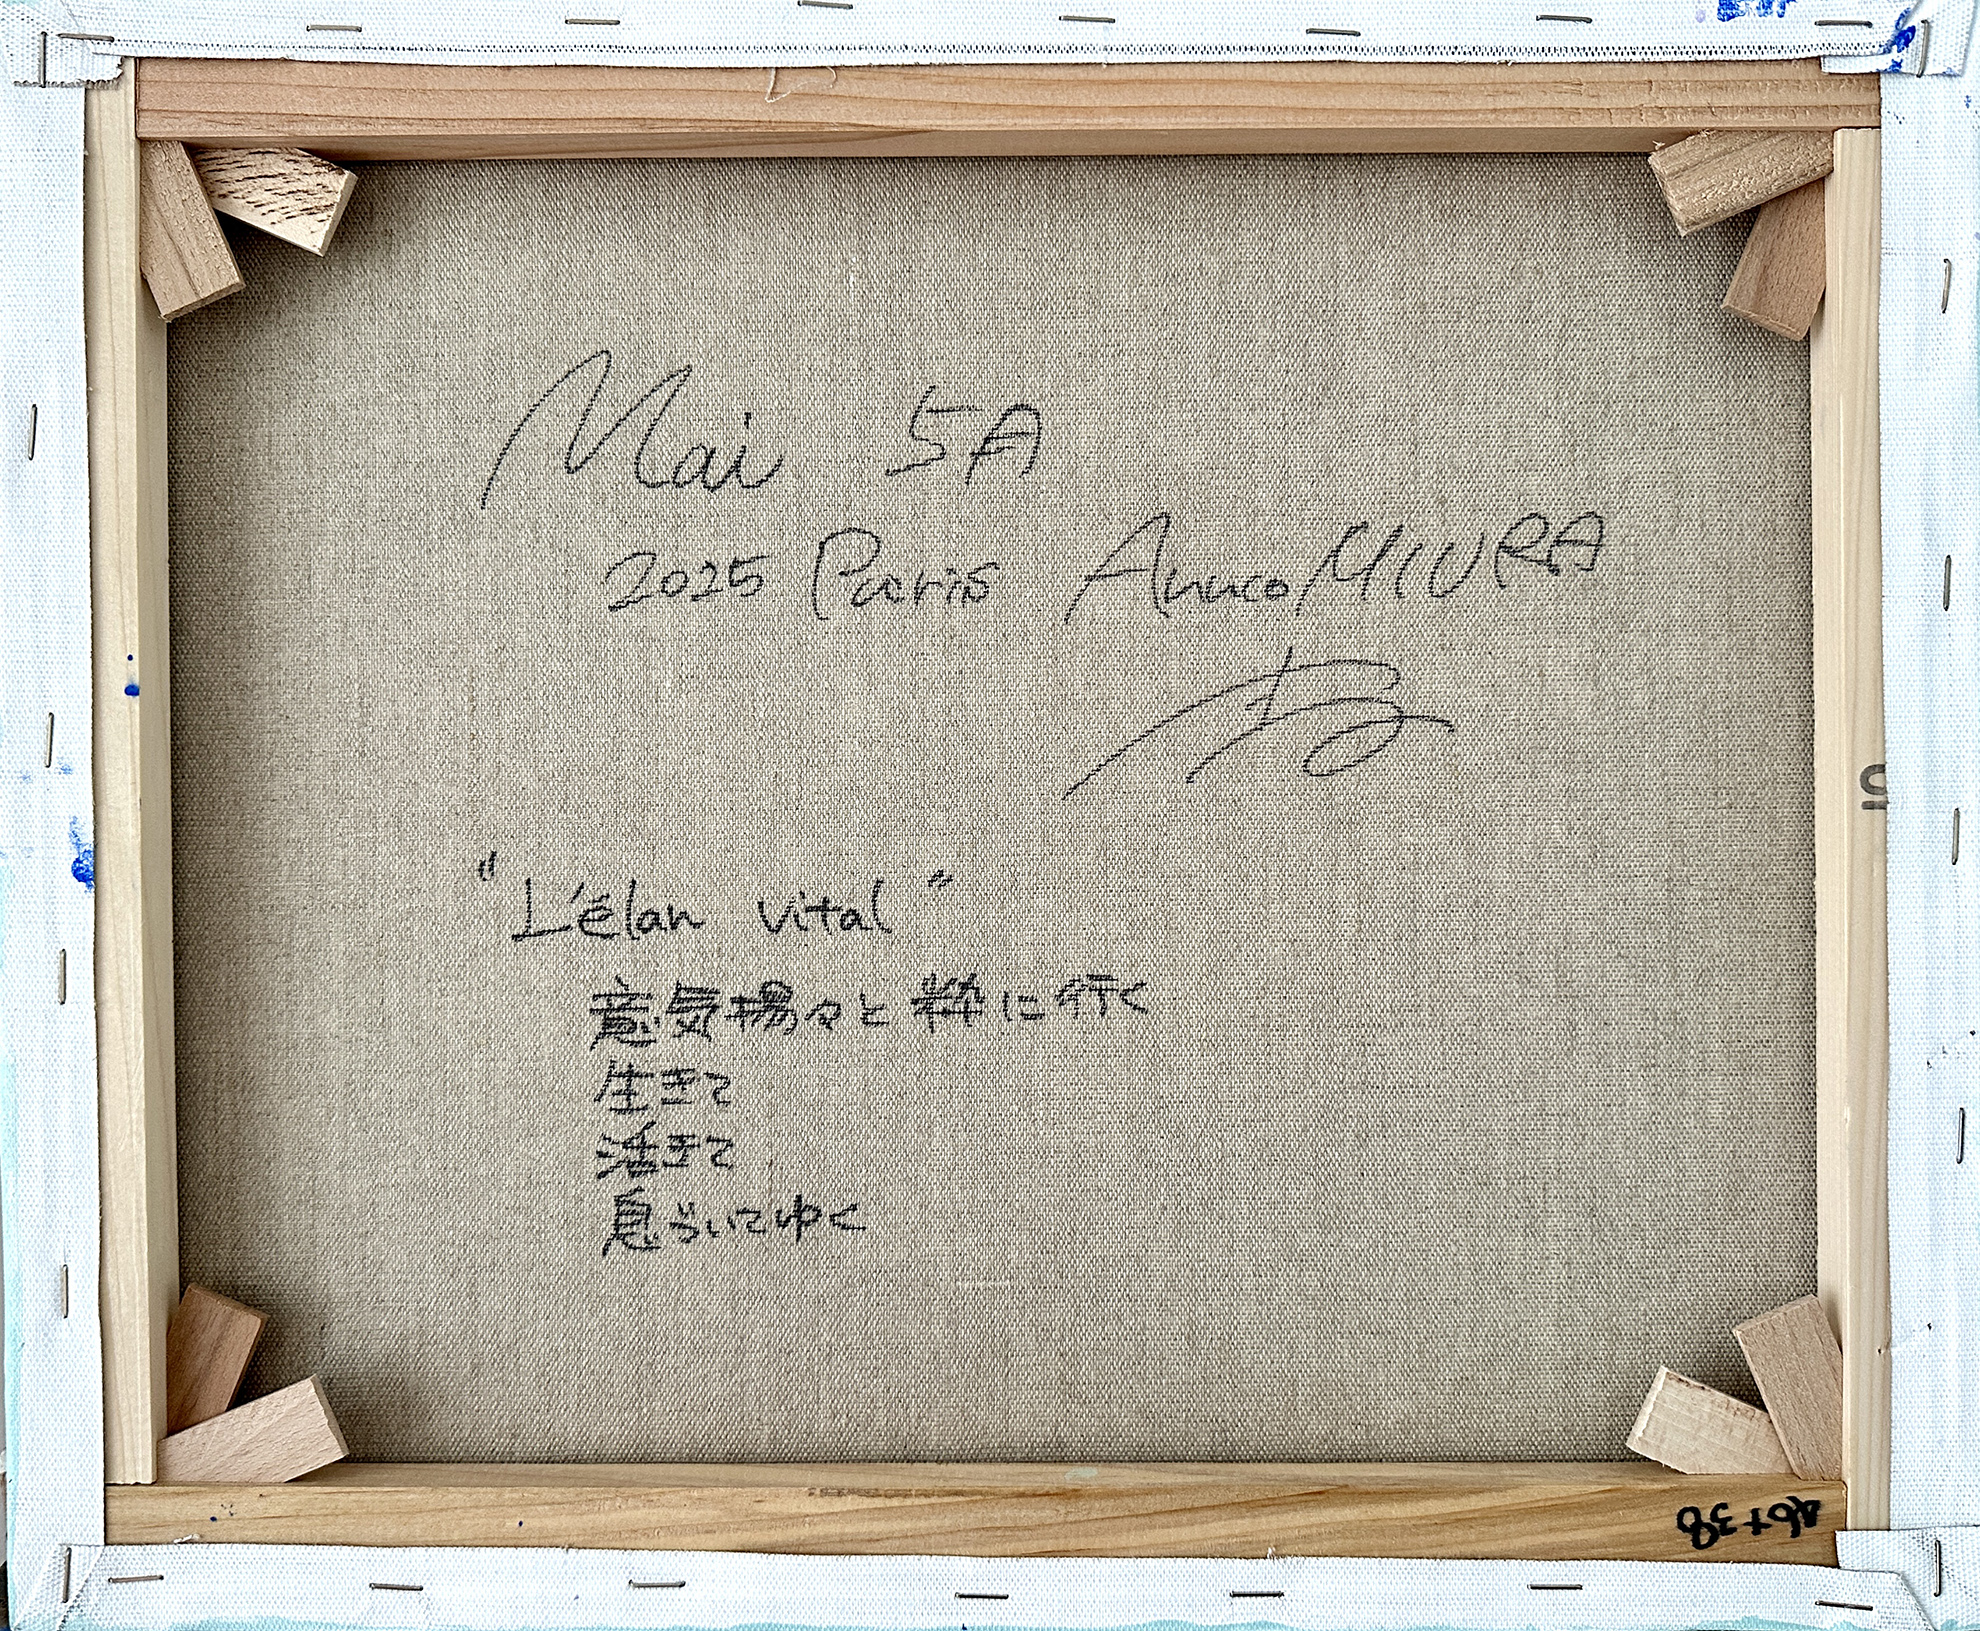 Mai 5A
2025 Paris Anuco MIURA
"L'élan vital"
意気揚々と粋に行く
生きて
活きて
息づいてゆく
46+38